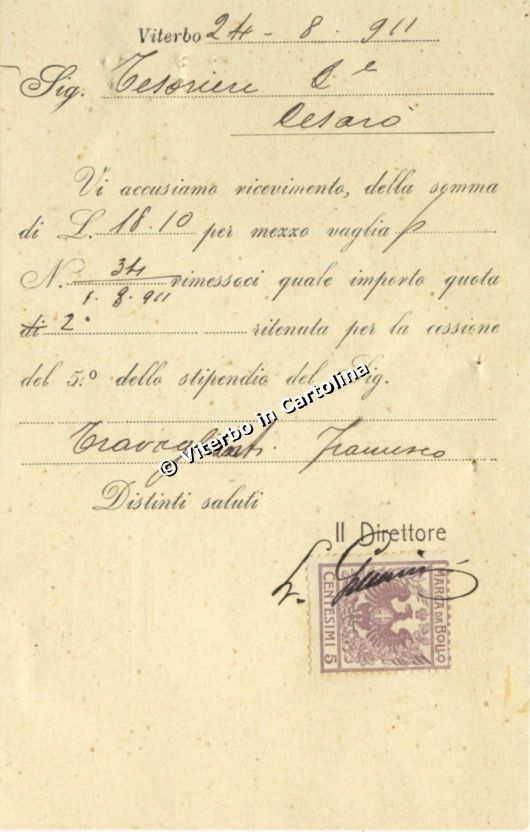 Viterbo 24 - 8 - 911
Sig. Tesoriere
Cesarò
Vi accusiamo ricevimento, della somma
di L. 18.10 per mezzo vaglia p
N. 34 rimessoci quale importo quota
1. 8. 911
di 2° ritenuta per la cessione
del 5.° dello stipendio del Sig.
Francesco
© Viterbo in Cartolina
Distinti saluti
Il Direttore
L.
CENTESIMI 5
MARCA DA BOLLO